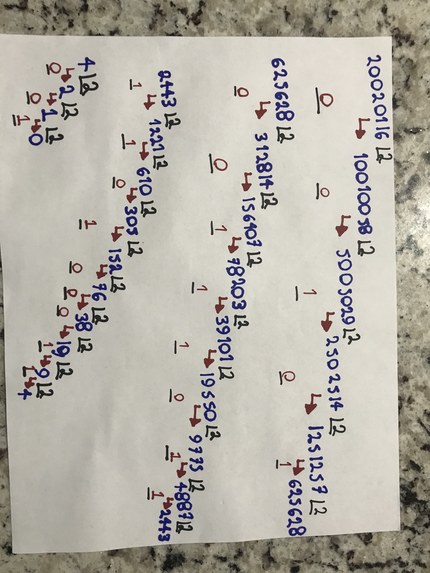 20020116 |2 ↳ 10010058 |2 ↳ 5005029 |2 ↳ 2502514 |2 ↳ 1251257 |2 ↳ 625628
0 0 1 0 1
625628 |2 ↳ 312814 |2 ↳ 156407 |2 ↳ 78203 |2 ↳ 39101 |2 ↳ 19550 |2 ↳ 9775 |2 ↳ 4887 |2 ↳ 2443
0 0 1 1 1 0 1 1
2443 |2 ↳ 1221 |2 ↳ 610 |2 ↳ 305 |2 ↳ 152 |2 ↳ 76 |2 ↳ 38 |2 ↳ 19 |2 ↳ 9 |2 ↳ 4
1 1 0 1 0 0 0 1 1
4 |2 ↳ 2 |2 ↳ 1 |2 ↳ 0
0 0 1